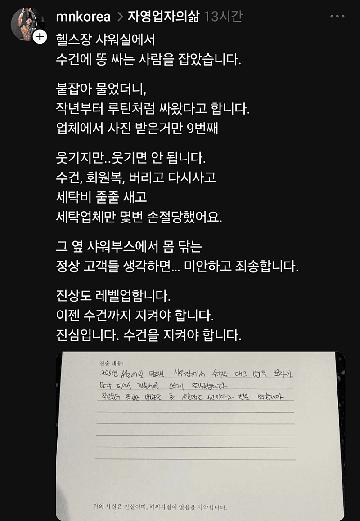 mnkorea > 자영업자의삶 13시간
헬스장 샤워실에서
수건에 똥 싸는 사람을 잡았습니다.
붙잡아 물었더니,
작년부터 루틴처럼 싸왔다고 합니다.
업체에서 사진 받은거만 9번째
웃기지만..웃기면 안 됩니다.
수건, 회원복, 버리고 다시사고
세탁비 줄줄 새고
세탁업체만 몇번 손절당했어요.
그 옆 샤워부스에서 몸 닦는
정상 고객들 생각하면... 미안하고 죄송합니다.
진상도 레벨업합니다.
이젠 수건까지 지켜야 합니다.
진심입니다. 수건을 지켜야 합니다.